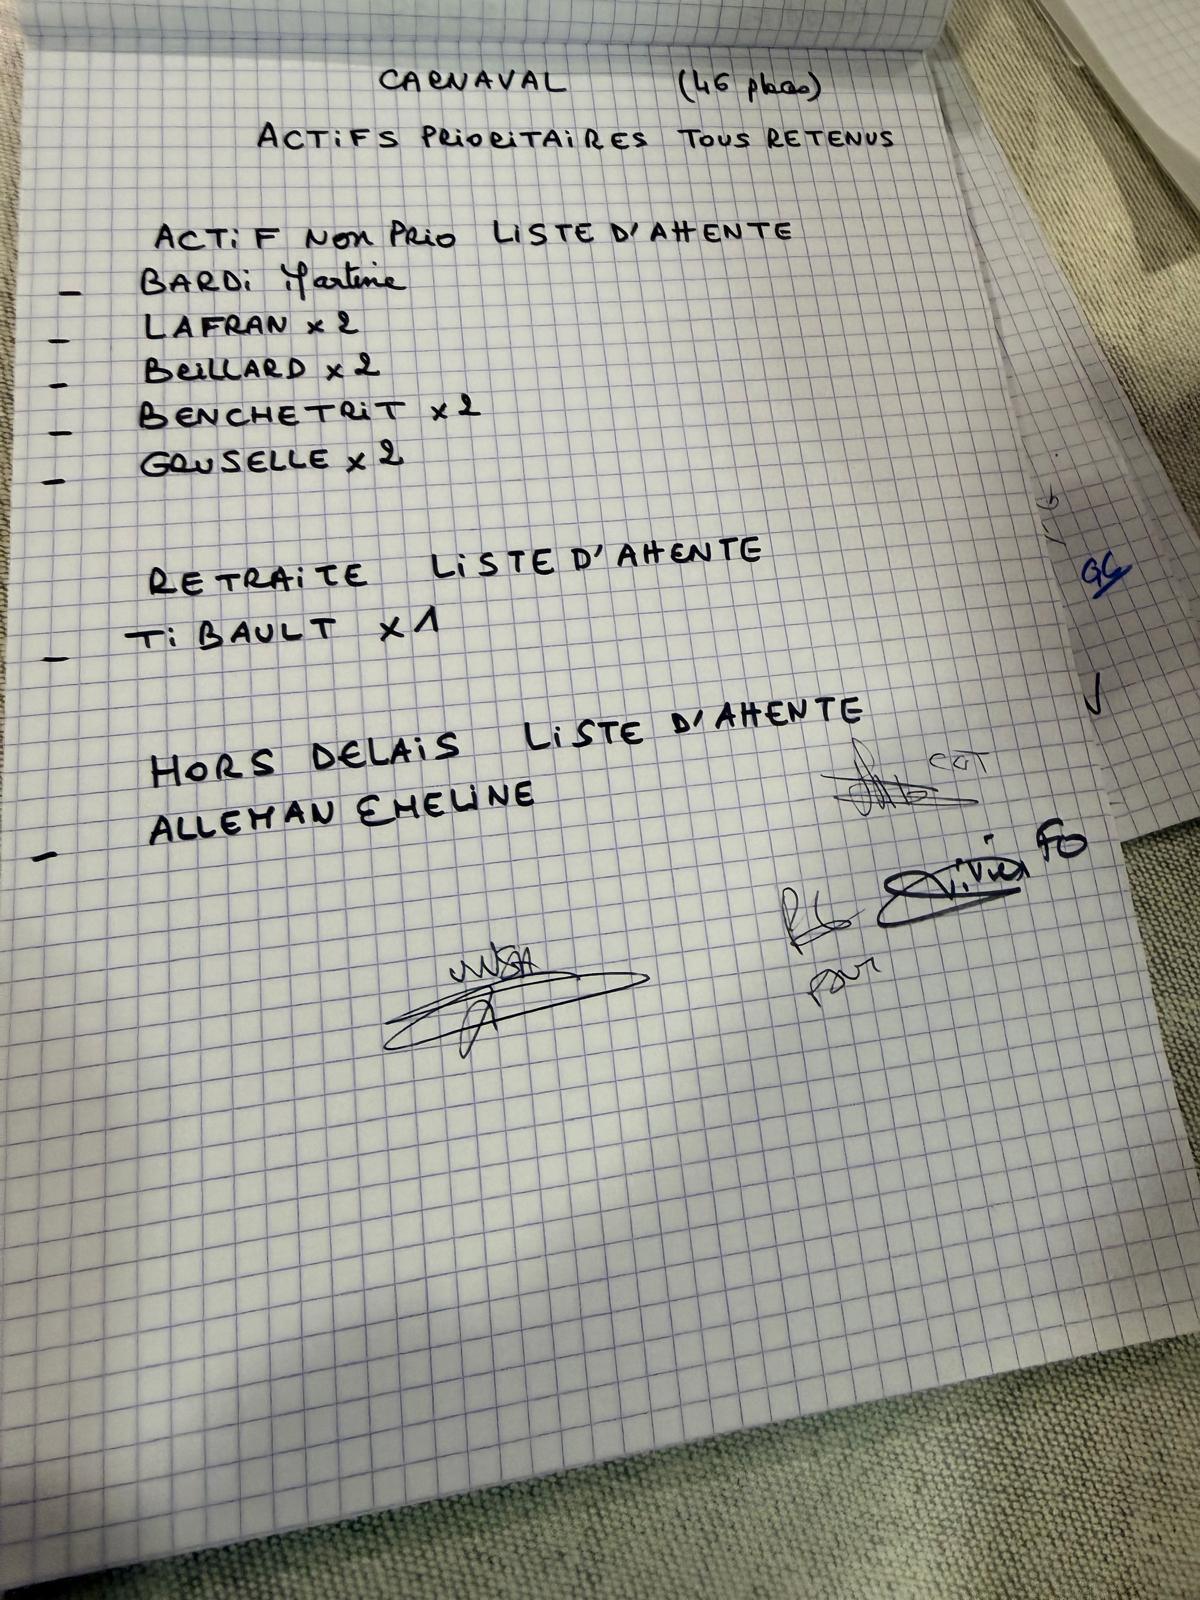 CARNAVAL (46 places)
ACTiFS PRiORiTAiRES TOUS RETENUS
ACTiF NON PRIO LISTE D'ATTENTE
- BARDi Martine
- LAFRAN x 2
- BRILLARD x 2
- BENCHETRiT x 2
- GRUSELLE x 2
RETRAiTE LiSTE D'ATTENTE
- TiBAULT x 1
HORS DELAiS LiSTE D'ATTENTE
- ALLEMAN EMELiNE
CGT
FO
pour
UNSA